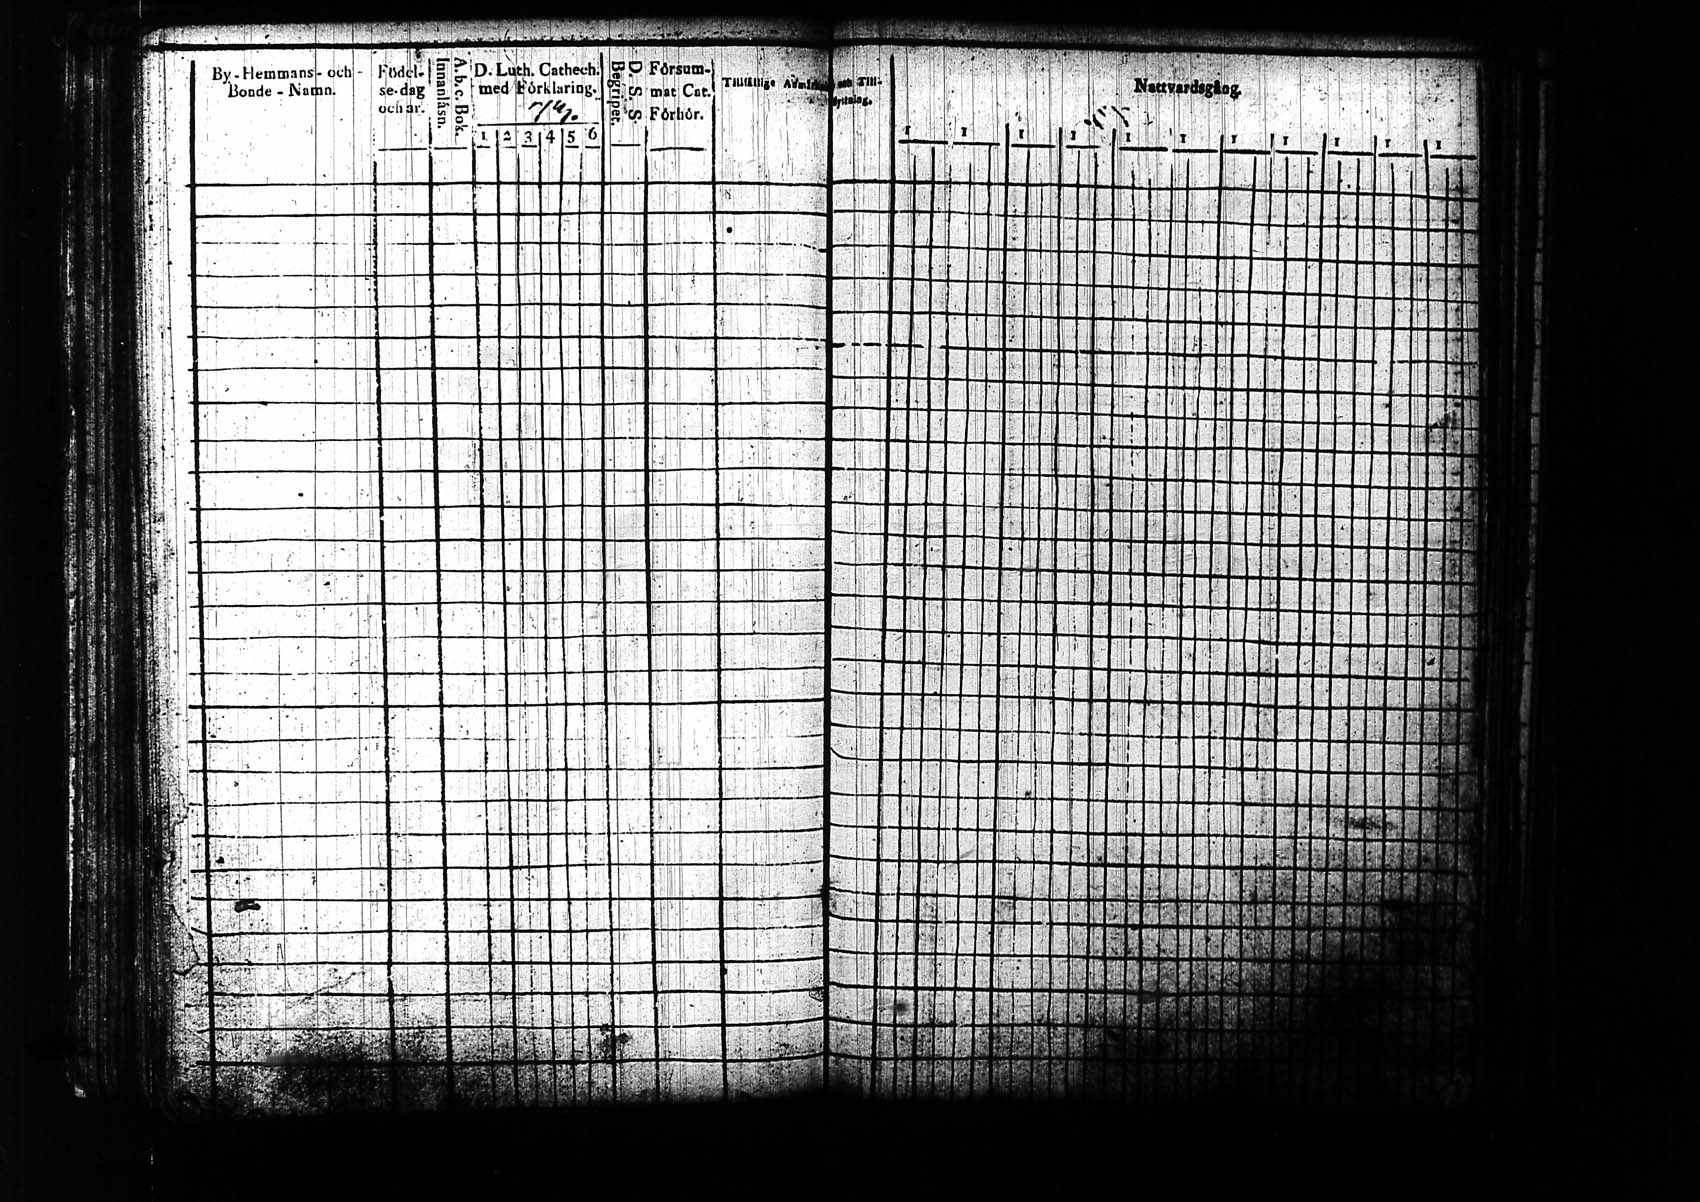 By-Hemmans- och-
Bonde-Namn.
Födel-
se-dag
och år.
Innanläsn.
A. b. c. Bok.
D. Luth. Cathech.
med Förklaring.
1 2 3 4 5 6
Begriper.
D. S. S.
Försum-
mat Cat.
Förhör.
Tillfällige
och Till-
flyttning.
Nattvardsgång.
1 1 1 1 1 1 1 1 1 1 1